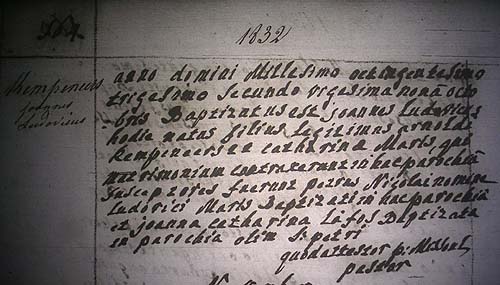 1832
Kempeneers
joannes
Ludovicus
anno domini Millesimo octingentesimo
trigesimo secundo vigesima nona octo
-bris Baptizatus est joannes Ludovicus
hodie natus filius Legitimus arnoldi
Kempeneers et catharinæ Maris, qui
matrimonium contraxerunt in hac parochiâ
Susceptores fuerunt petrus Nicolai nomine
Ludovici Maris Baptizati in hac parochiâ
et joanna catharina Lafos Baptizata
in parochia olim S. petri
quod attestor p:
pastor